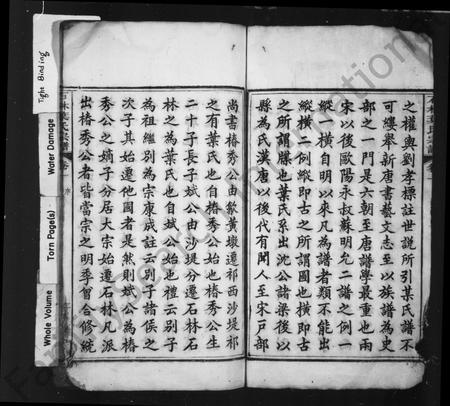 之權輿劉孝標註世說所引某氏譜不
可縷舉新唐書藝文志至以族譜為史
部之一門是六朝至唐譜學最重也兩
宋以後歐陽永叔蘇明允二譜之例一
縱一橫自明以來凡為譜者類不能出
縱橫二例縱即古之所謂圖也橫即古
之所謂牒也葉氏系出沈公諸梁後以
縣為氏漢唐以後代有聞人至宋戶部
尚書椿秀公由歙黃墩遷祁西沙堤祁
之有葉氏也自椿秀公始也椿秀公生
二十子長子斌公由沙堤分遷石林石
林之為葉氏也自斌公始也禮云別子
為祖繼別為宗康成註云別子諸侯之
次子其始遷他國者是然則斌公為椿
秀公之嫡子分居大宗始遷石林凡派
出椿秀公者皆當宗之明季曾合修統
石林葉氏宗譜
序
Tight Binding
Water Damage
Torn Page(s)
Whole Volume